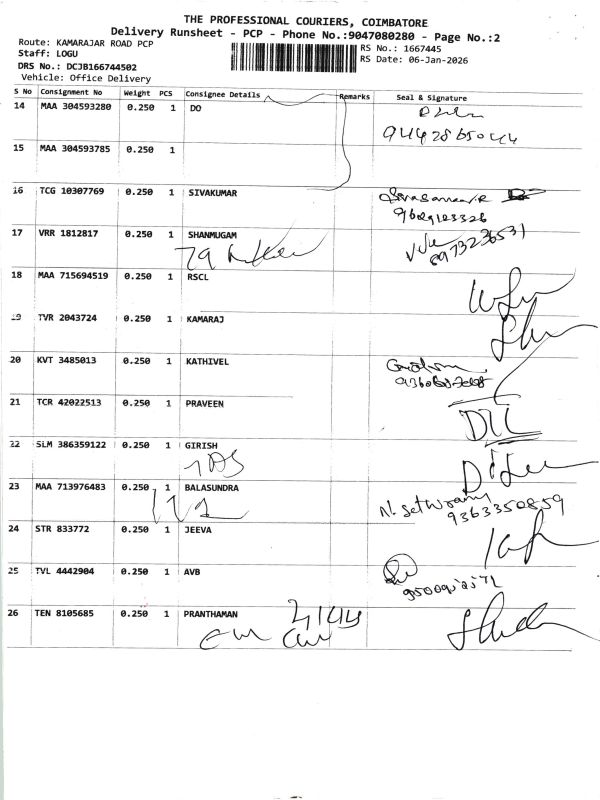 THE PROFESSIONAL COURIERS, COIMBATORE
Delivery Runsheet - PCP - Phone No.:9047080280 - Page No.:2
Route: KAMARAJAR ROAD PCP
Staff: LOGU
DRS No.: DCJB166744502
Vehicle: Office Delivery
RS No.: 1667445
RS Date: 06-Jan-2026
S No Consignment No Weight PCS Consignee Details Remarks Seal & Signature
14 MAA 304593280 0.250 1 DO
15 MAA 304593785 0.250 1
16 TCG 10307769 0.250 1 SIVAKUMAR
17 VRR 1812817 0.250 1 SHANMUGAM
18 MAA 715694519 0.250 1 RSCL
19 TVR 2043724 0.250 1 KAMARAJ
20 KVT 3485013 0.250 1 KATHIVEL
21 TCR 42022513 0.250 1 PRAVEEN
22 SLM 386359122 0.250 1 GIRISH
23 MAA 713976483 0.250 1 BALASUNDRA
9363350859
24 STR 833772 0.250 1 JEEVA
25 TVL 4442904 0.250 1 AVB
26 TEN 8105685 0.250 1 PRANTHAMAN